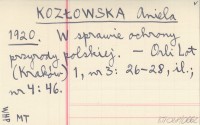 KOZŁOWSKA Aniela
1920. W sprawie ochrony
przyrody polskiej. — Orli Lot
(Kraków) 1, nr 3: 26-28, il.;
nr 4: 46.
WHP
MT